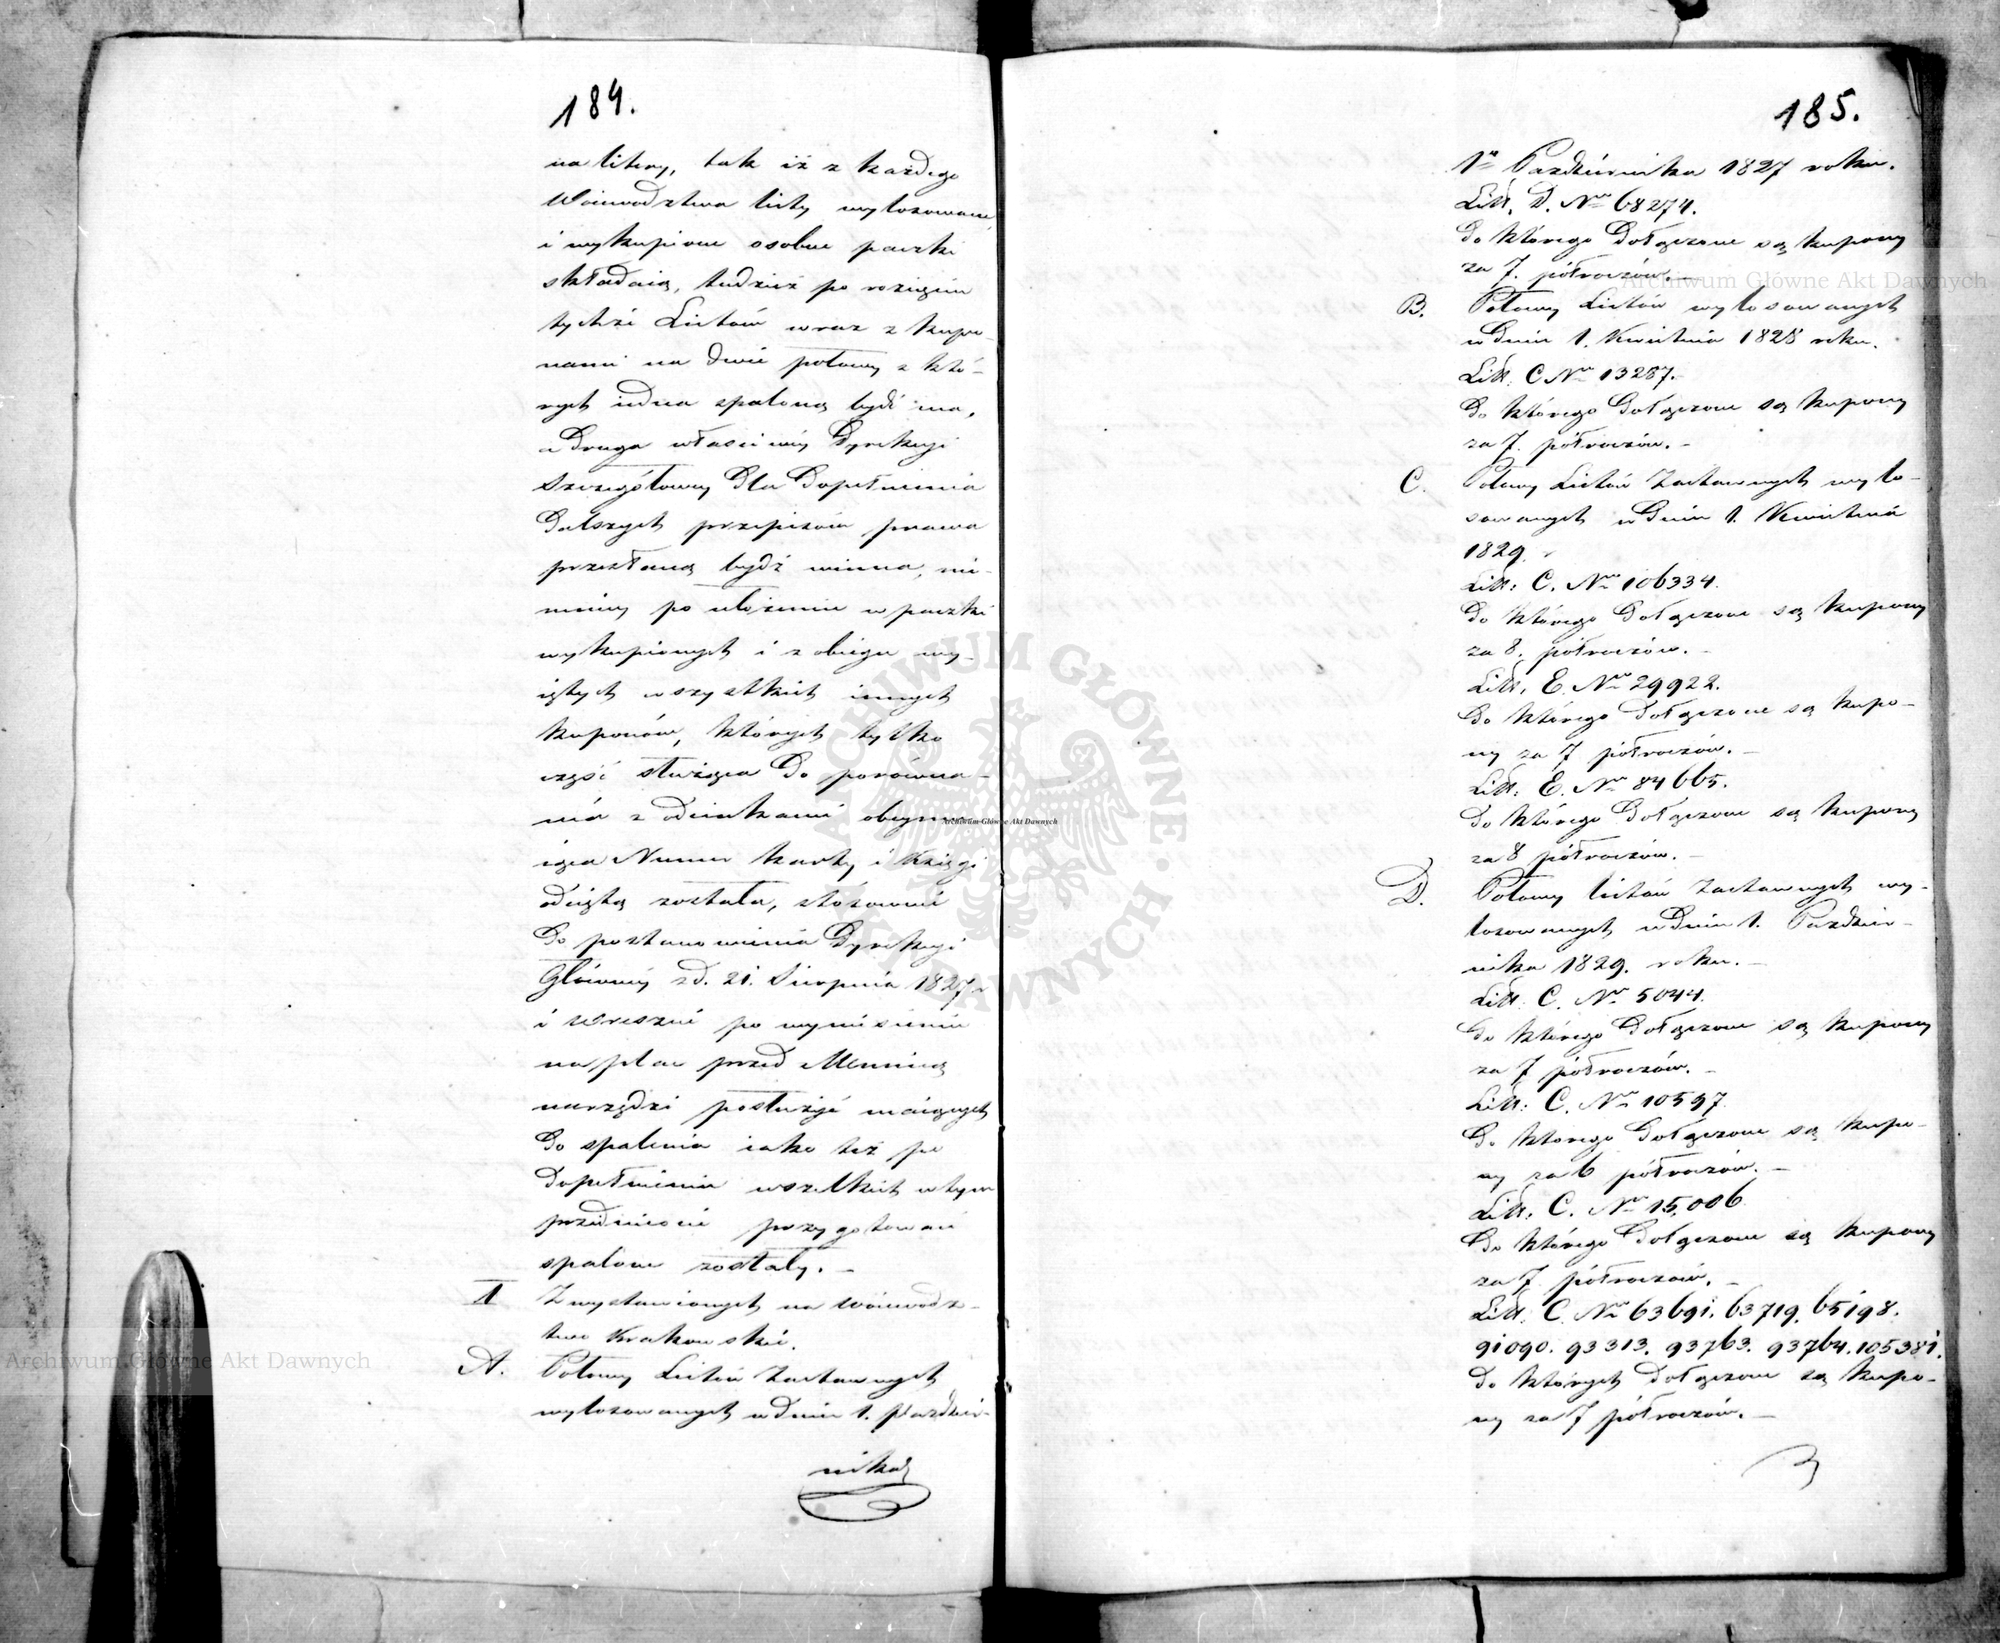 184.
na litery, tak iż z każdego
Woiewodztwa listy wylosowane
i wykupione osobne paczki
składaią, tudzież po rozcięciu
tychże Listów wraz z kupo-
nami na dwie połowy z któ-
rych iedna spaloną bydź ma,
a druga właściwéy Dyrekcyi
Szczegółowéy dla dopełnienia
dalszych przepisów prawa
przesłaną bydź winna, nie-
mniéy po ułożeniu w paczki
wykupionych i z obiegu wy-
iętych wszystkich innych
kuponów, których tylko
część służąca do porówna-
nia z odcinkami obeymu-
iąca Numer karty i Księgi
odciętą została, stósownie
do postanowienia Dyrekcyi
Główney z d. 21. Sierpnia 1827 r
i wreszcie po wyniesieniu
na plac przed Mennicą
narzędzi posłużyć maiących
do spalenia iako też po
dopełnieniu wszelkich w tym
przedmiocie przygotowań
spalone zostały. –
I Z wystawionych na Woiewodz-
two Krakowskie.
A. Połowy Listów Zastawnych
wylosowanych w dniu 1. Paździer-
nika
185.
1go Października 1827 roku.
Litt. D. Nro 68274.
do którego dołączone są kupony
za 7. półroczów. –
B. Połowy Listów wylosowanych
w dniu 1. Kwietnia 1828 roku.
Litt. C Nro 13287.
do którego dołączone są kupony
za 7. półroczów. –
C. Połowy Listów Zastawnych wylo-
sowanych w dniu 1. Kwietnia
1829 r
Litt. C. Nro 106334.
do którego dołączone są kupony
za 8. półroczów. –
Litt. E. Nro 29922.
do którego dołączone są kupo-
ny za 7 półroczów. –
Litt. E. Nro 84665.
do którego dołączone są kupony
za 8 półroczów. –
D. Połowy listów Zastawnych wy-
losowanych w dniu 1. Paździer-
nika 1829. roku. –
Litt. C. Nro 5044.
do którego dołączone są kupony
za 7 półroczów. –
Litt. C. Nro 10597
do którego dołączone są kupo-
ny za 6 półroczów. –
Litt. C. Nro 15,006
do którego dołączone są kupony
za 7 półroczów. –
Litt. C. Nro 63691. 63719. 65198.
91090. 93313. 93763. 93764. 105381.
do których dołączone są kupo-
ny za 7 półroczów. –
Archiwum Główne Akt Dawnych
Archiwum Główne Akt Dawnych
Archiwum Główne Akt Dawnych
ARCHIWUM GŁÓWNE AKT DAWNYCH